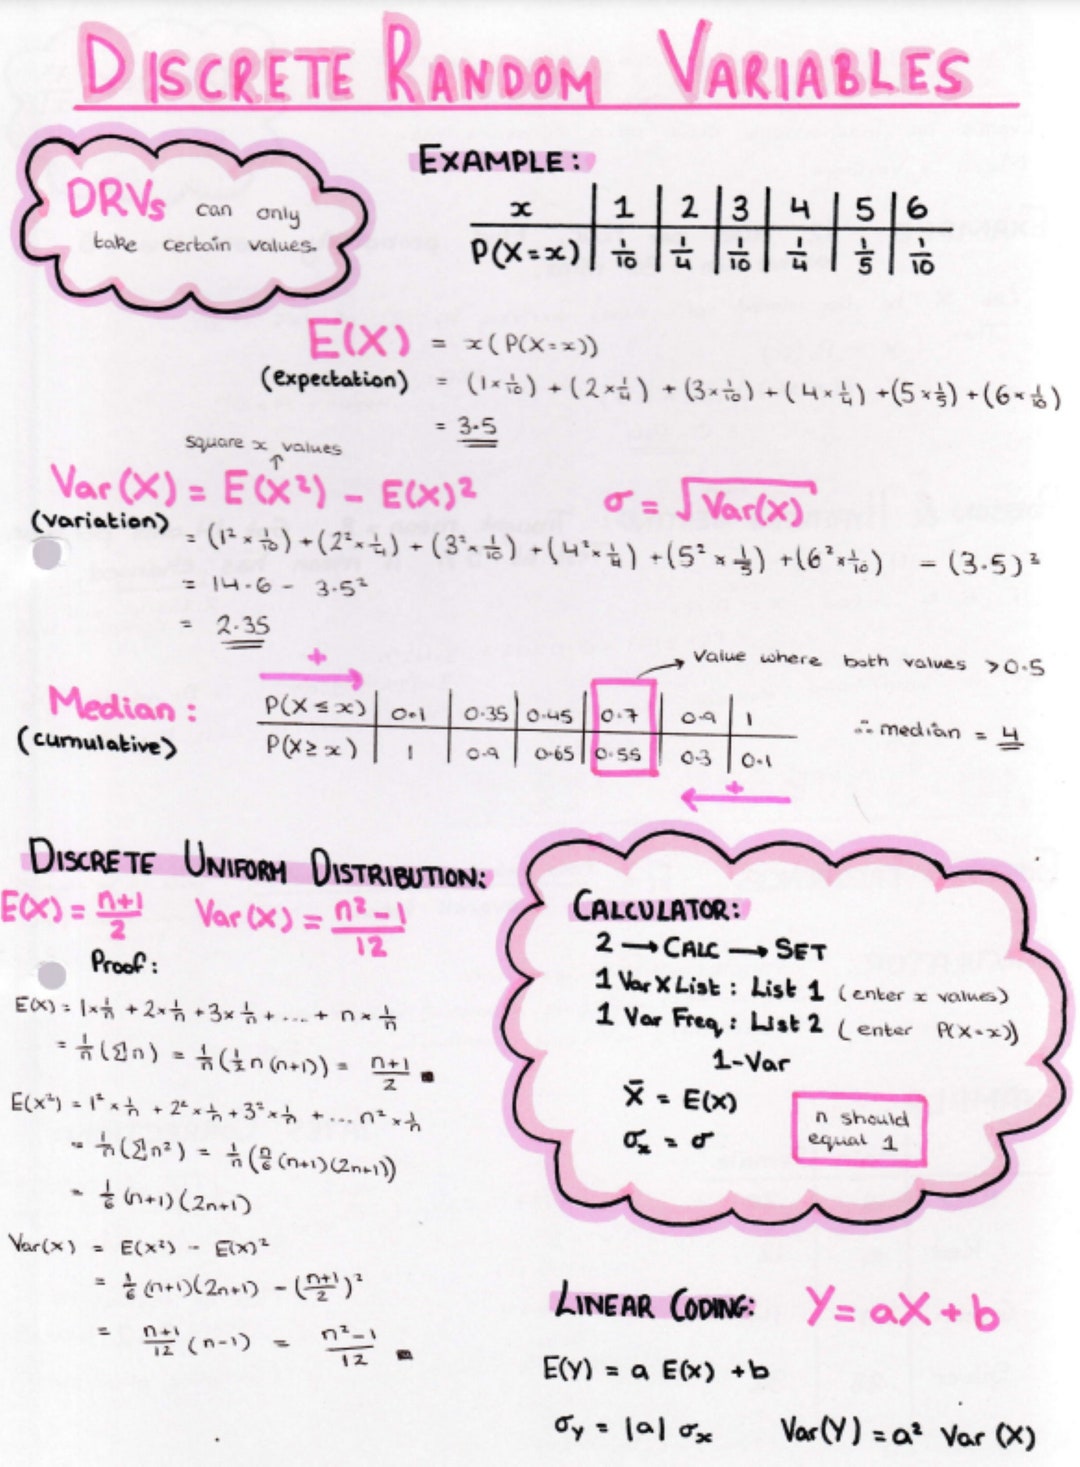 DISCRETE RANDOM VARIABLES
DRVs can only
take certain values.
EXAMPLE:
x | 1 | 2 | 3 | 4 | 5 | 6
P(X=x) | 1/10 | 1/4 | 1/10 | 1/4 | 1/5 | 1/10
E(X) = x(P(X=x))
(expectation) = (1×1/10) + (2×1/4) + (3×1/10) + (4×1/4) + (5×1/5) + (6×1/10)
= 3.5
square x values
Var(X) = E(X²) - E(X)²
σ = √Var(X)
(variation)
= (1²×1/10) + (2²×1/4) + (3²×1/10) + (4²×1/4) + (5²×1/5) + (6²×1/10) - (3.5)²
= 14.6 - 3.5²
= 2.35
+
Value where both values >0.5
Median:
(cumulative)
P(X≤x) | 0.1 | 0.35 | 0.45 | 0.7 | 0.9 | 1
P(X≥x) | 1 | 0.9 | 0.65 | 0.55 | 0.3 | 0.1
∴ median = 4
+
DISCRETE UNIFORM DISTRIBUTION:
E(X) = n+1/2 Var(X) = n²-1/12
Proof:
E(X) = 1×1/n + 2×1/n + 3×1/n + ... + n×1/n
= 1/n(Σn) = 1/n(1/2n(n+1)) = n+1/2 ■
E(X²) = 1²×1/n + 2²×1/n + 3²×1/n + ... n²×1/n
= 1/n(Σn²) = 1/n(n/6(n+1)(2n+1))
= 1/6(n+1)(2n+1)
Var(X) = E(X²) - E(X)²
= 1/6(n+1)(2n+1) - (n+1/2)²
= n+1/12(n-1) = n²-1/12 ■
CALCULATOR:
2 → CALC → SET
1 Var XList : List 1 (enter x values)
1 Var Freq : List 2 (enter P(X=x))
1-Var
x̄ = E(X)
σx = σ
n should
equal 1
LINEAR CODING: Y = aX + b
E(Y) = a E(X) + b
σy = |a| σx Var(Y) = a² Var(X)